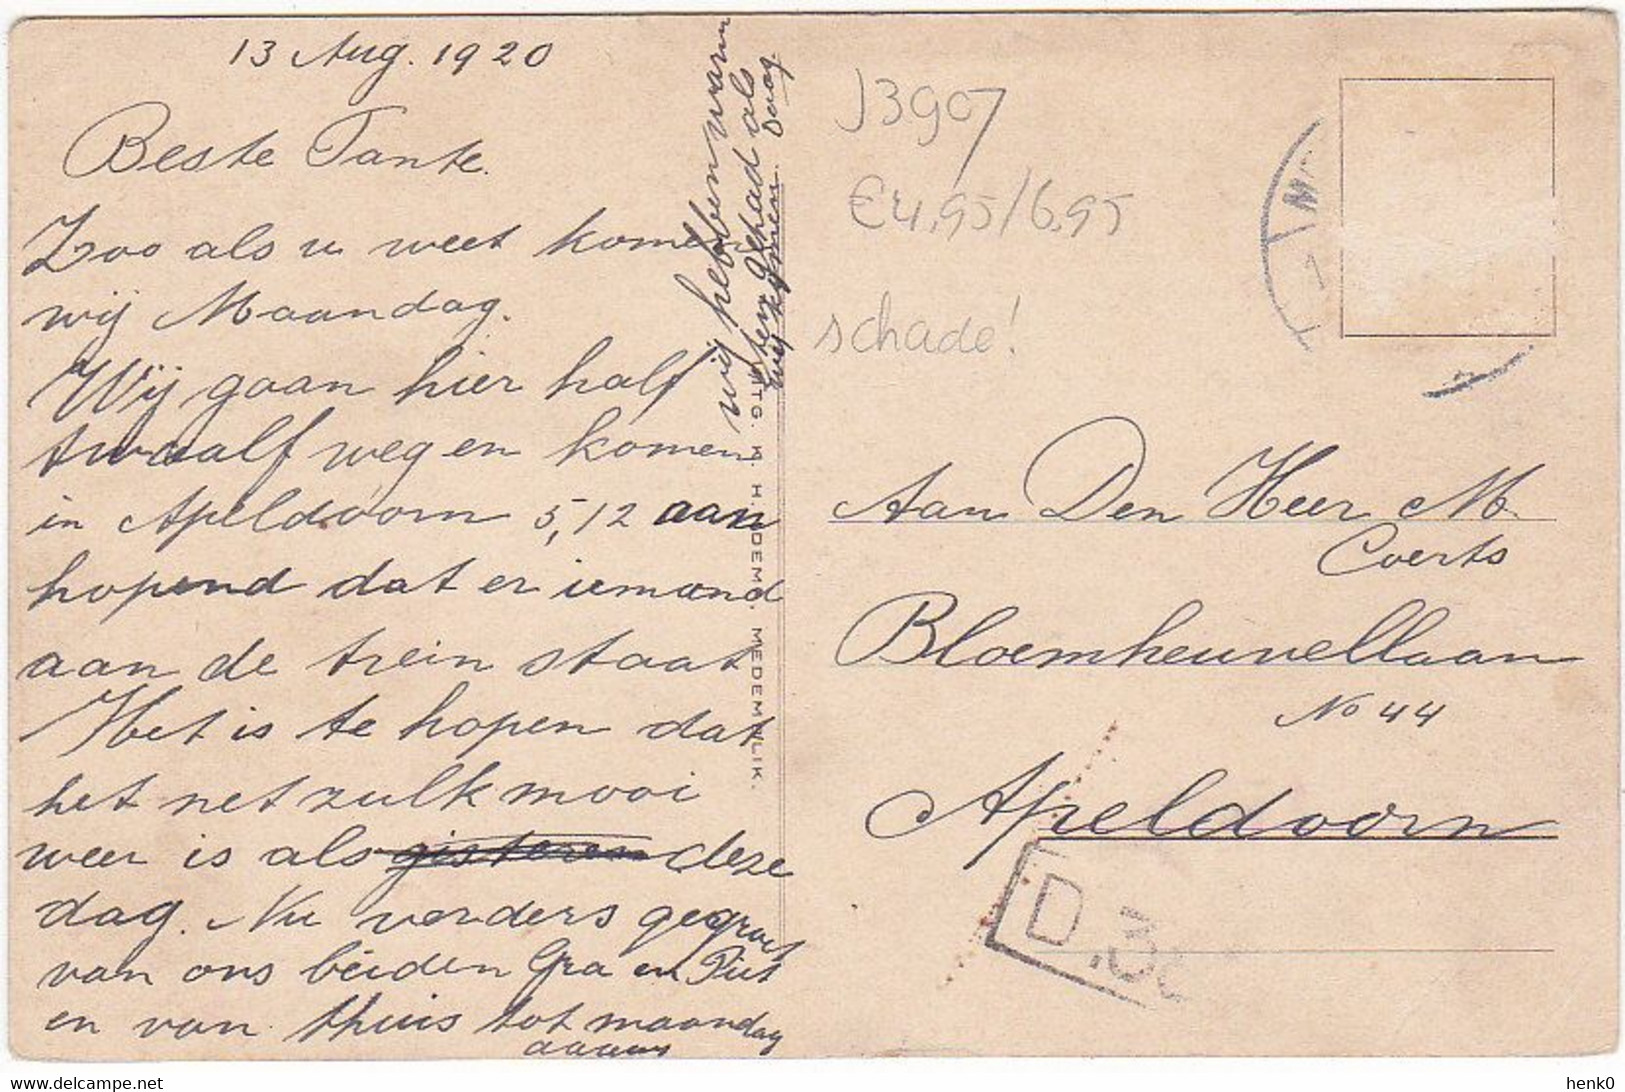 13 Aug. 1920
Beste Tante.
Zoo als u weet komen
wij Maandag.
Wij gaan hier half
twaalf weg en komen
in Apeldoorn 5,12 aan
hopend dat er iemand
aan de trein staat
Het is te hopen dat
het net zulk mooi
weer is als gisteren deze
dag. Nu verders gegroet
van ons beiden Gra en Piet
en van thuis tot maandag
wij hebben warm
eten gehad als
wij komen. Daag.
UITG. K. H. IDEMA. MEDEMBLIK.
J3907
€4,95/6,95
schade!
Aan Den Heer M.
Coerts
Bloemheuvellaan
No 44
Apeldoorn
D.3
henk0